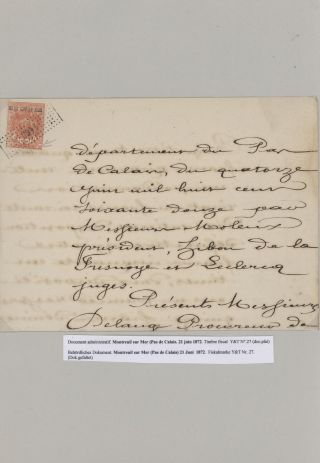 département du Pas
de Calais, du quatorze
Juin mil huit cent
soixante douze par
Messieurs Moleux
président, Zibou de la
Fresnoye et Leclercq
juges.
Présents Messieurs
Delaug Procureur de
Document administratif. Montreuil sur Mer (Pas de Calais. 21 juin 1872. Timbre fiscal Y&T N° 27 (doc.plié)
Behördliches Dokument. Montreuil sur Mer (Pas de Calais) 21 Juni 1872. Fiskalmarke Y&T Nr. 27.
(Dok.gefaltet)